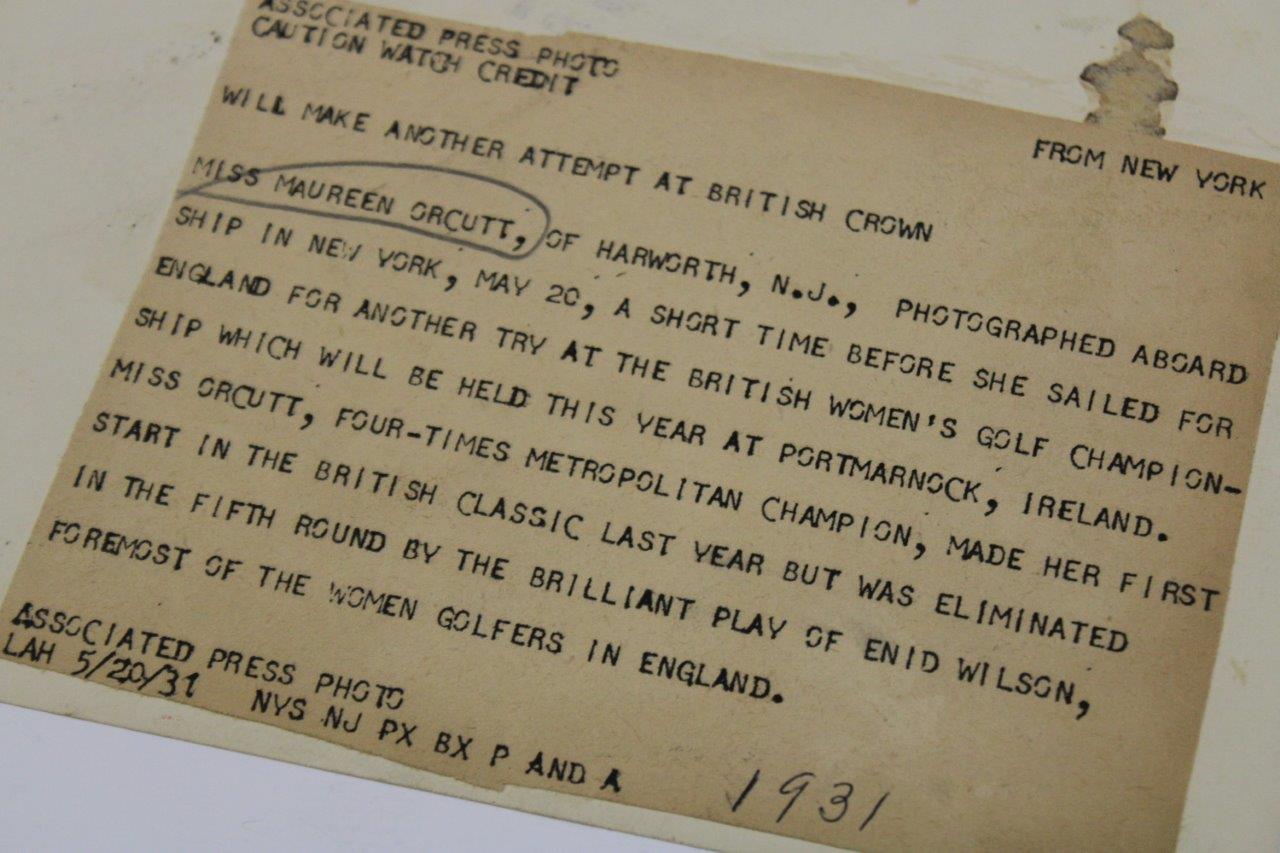 ASSOCIATED PRESS PHOTO
CAUTION WATCH CREDIT
FROM NEW YORK
WILL MAKE ANOTHER ATTEMPT AT BRITISH CROWN
MISS MAUREEN ORCUTT, OF HARWORTH, N.J., PHOTOGRAPHED ABOARD
SHIP IN NEW YORK, MAY 20, A SHORT TIME BEFORE SHE SAILED FOR
ENGLAND FOR ANOTHER TRY AT THE BRITISH WOMEN'S GOLF CHAMPION-
SHIP WHICH WILL BE HELD THIS YEAR AT PORTMARNOCK, IRELAND.
MISS ORCUTT, FOUR-TIMES METROPOLITAN CHAMPION, MADE HER FIRST
START IN THE BRITISH CLASSIC LAST YEAR BUT WAS ELIMINATED
IN THE FIFTH ROUND BY THE BRILLIANT PLAY OF ENID WILSON,
FOREMOST OF THE WOMEN GOLFERS IN ENGLAND.
ASSOCIATED PRESS PHOTO
LAH 5/20/31 NYS NJ PX BX P AND A
1931